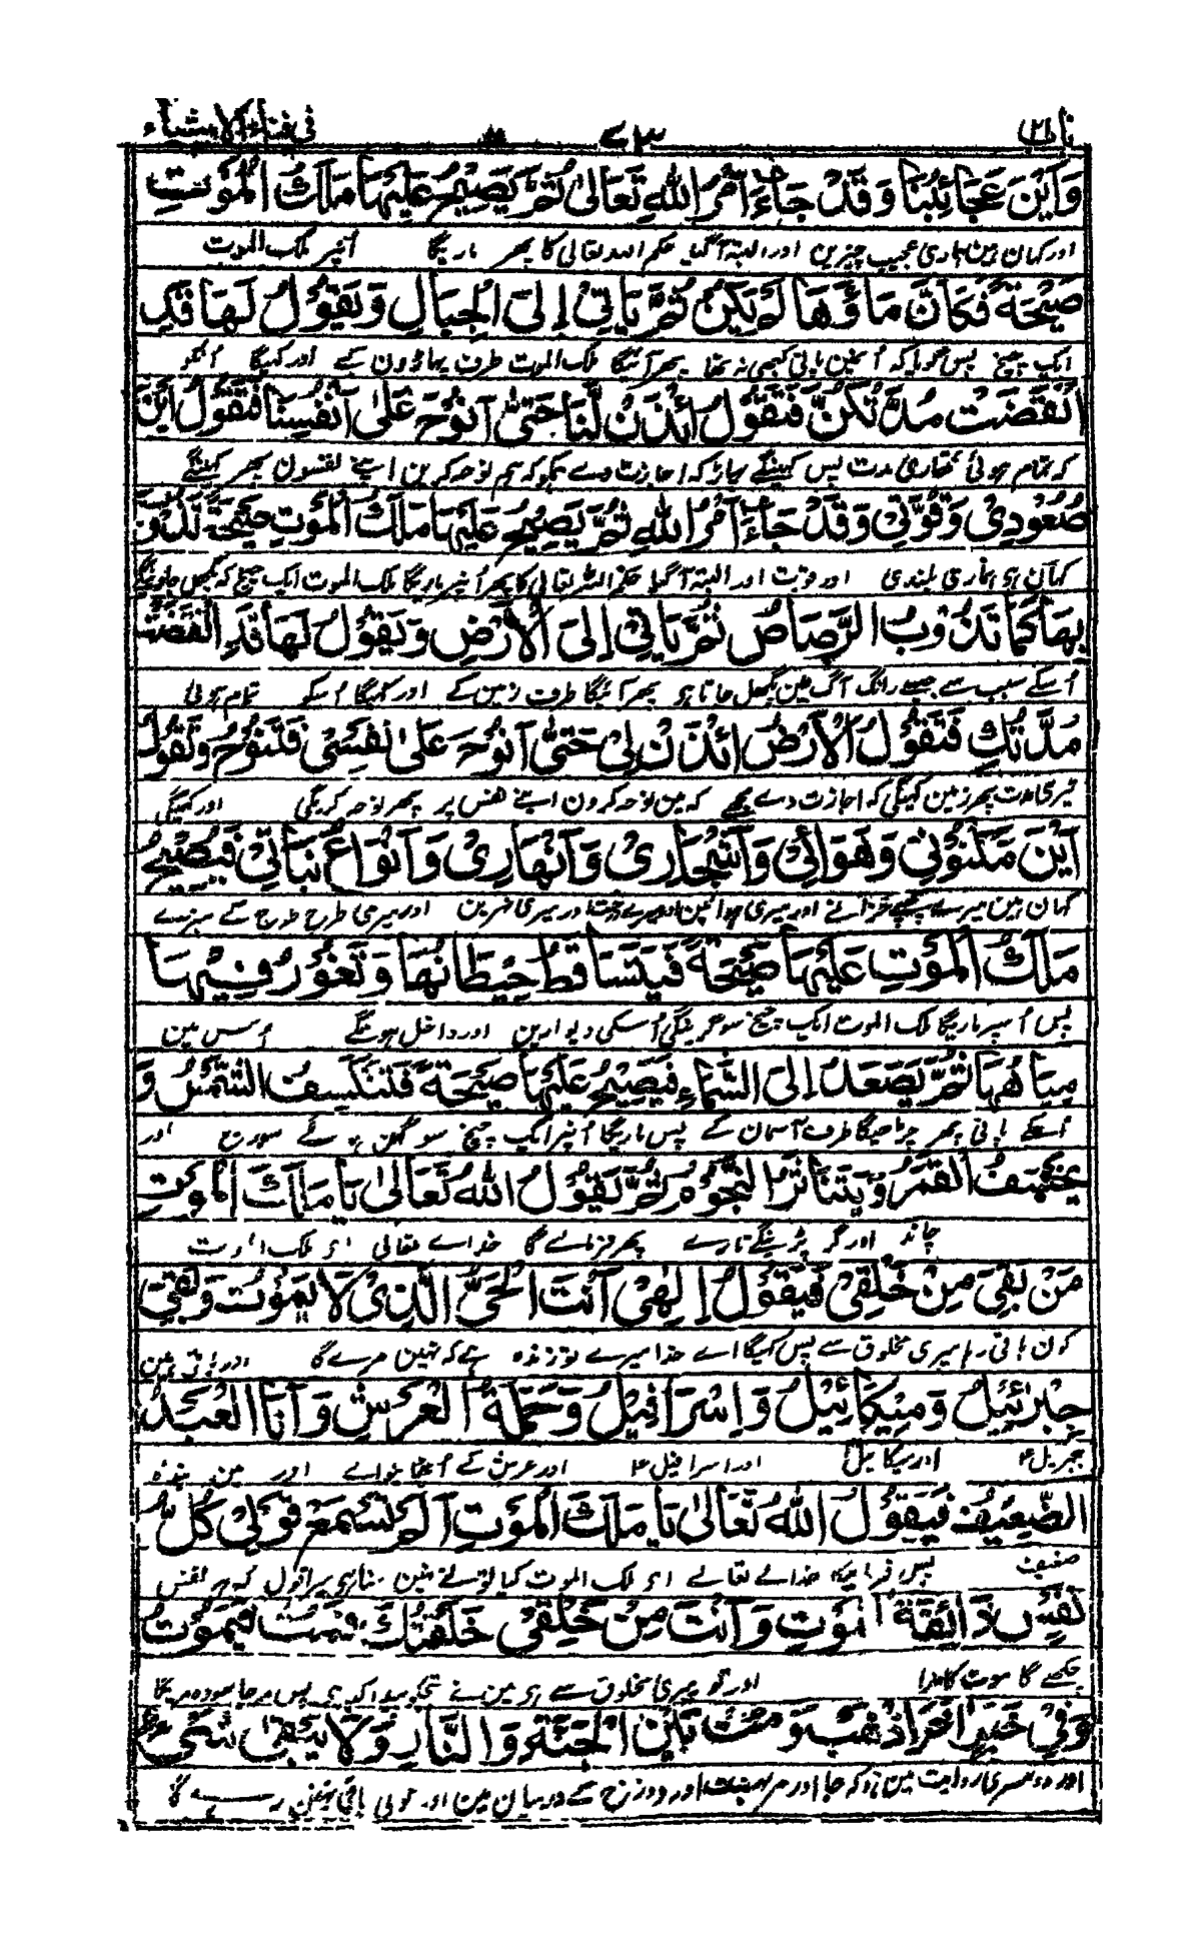 باب۲۱ ۷۳ فی فناء الاشیاء
وَاَيْنَ عَجَائِبُنَا وَقَدْ جَاءَ اَمْرُ اللهِ تَعَالٰى ثُمَّ يَصِيْحُ عَلَيْهَا مَلَكُ الْمَوْتِ
اور کہان ہین ہماری عجیب چیزین اور البتہ آگیا حکم اللہ تعالی کا پھر ماریگا اُنپر ملک الموت
صَيْحَةً فَكَانَّ مَاؤَهَا لَمْ يَكُنْ ثُمَّ يَاتِيْ اِلَى الْجِبَالِ وَيَقُوْلُ لَهَا قَدِ
ایک چیخ پس گویا کہ اُنمین پانی کبھی نہ تھا پھر آئیگا ملک الموت طرف پہاڑون کے اور کہیگا اُنکو
انْقَضَتْ مُدَّتُكُنَّ فَتَقُوْلُ ائْذَنْ لَنَا حَتّٰى اَنُوْحَ عَلٰى اَنْفُسِنَا فَتَقُوْلُ اَيْنَ
کہ تمام ہوئی تمھاری مدت پس کہینگے پہاڑ کہ اجازت دے ہمکو کہ ہم نوحہ کرین اپنے نفسون پھر کہینگے
صُعُوْدِيْ وَقُوَّتِيْ وَقَدْ جَاءَ اَمْرُ اللهِ ثُمَّ يَصِيْحُ عَلَيْهَا مَلَكُ الْمَوْتِ صَيْحَةً تَذُوْبُ
کہان ہی ہماری بلندی اور قوت اور البتہ آگیا حکم اللہ تعالی کا پھر اُنپر ماریگا ملک الموت ایک چیخ کہ پگھل جاوینگے
بِهَا كَمَا تَذُوْبُ الرَّصَاصُ ثُمَّ يَاتِيْ اِلَى الْاَرْضِ وَيَقُوْلُ لَهَا قَدِ انْقَضَتْ
اُسکے سبب سے جیسے رانگ آگ مین پگھل جاتا ہی پھر آئیگا طرف زمین کے اور کہیگا اُسکو تمام ہوئی
مُدَّتُكِ فَتَقُوْلُ الْاَرْضُ ائْذَنْ لِيْ حَتّٰى اَنُوْحَ عَلٰى نَفْسِيْ فَتَنُوْحُ وَتَقُوْلُ
تیری مدت پھر زمین کہیگی کہ اجازت دے مجھے کہ مین نوحہ کرون اپنے نفس پر پھر نوحہ کریگی اور کہیگی
اَيْنَ مَكْنُوْنِيْ وَهَوَائِيْ وَاَشْجَارِيْ وَاَنْهَارِيْ وَاَنْوَاعُ نَبَاتِيْ فَيَصِيْحُ
کہان ہین میرے چھپے خزانے اور میری ہوائین اور میرے درخت اور میری نہرین اور میری طرح طرح کے سبزے
مَلَكُ الْمَوْتِ عَلَيْهَا صَيْحَةً فَيَتَسَاقَطُ حِيْطَانُهَا وَتَغُوْرُ فِيْهَا
پس اُسپر ماریگا ملک الموت ایک چیخ سو گرینگی اُسکی دیوارین اور داخل ہونگے اُس مین
مِيَاهُهَا ثُمَّ يَصْعَدُ اِلَى السَّمَاءِ فَيَصِيْحُ عَلَيْهَا صَيْحَةً فَتَنْكَسِفُ الشَّمْسُ وَ
اُسکے پانی پھر چڑھیگا طرف آسمان کے پس ماریگا اُنپر ایک چیخ سو گہن ہوگا سورج اور
يَخْسِفُ الْقَمَرُ وَيَتَنَاثَرُ النُّجُوْمُ ثُمَّ يَقُوْلُ اللهُ تَعَالٰى يَا مَلَكَ الْمَوْتِ
چاند اور گر پڑینگے تارے پھر فرمائے گا خداے تعالی ای ملک الموت
مَنْ بَقِيَ مِنْ خَلْقِيْ فَيَقُوْلُ اِلٰهِيْ اَنْتَ الْحَيُّ الَّذِيْ لَا يَمُوْتُ وَبَقِيَ
کون باقی رہا میری مخلوق سے پس کہیگا اے خدا میرے تو زندہ ہے کہ نہین مرے گا اور باقی ہین
جِبْرَئِيْلُ وَمِيْكَائِيْلُ وَاِسْرَافِيْلُ وَحَمَلَةُ الْعَرْشِ وَاَنَا الْعَبْدُ
جبریل اور میکائیل اور اسرافیل اور عرش کے اُٹھانیوالے اور مین بندہ
الضَّعِيْفُ فَيَقُوْلُ اللهُ تَعَالٰى يَا مَلَكَ الْمَوْتِ اَلَمْ تَسْمَعْ قَوْلِيْ كُلُّ
ضعیف پس فرمائیگا خداے تعالے ای ملک الموت کیا تونے نہین سنا ہی میرا قول کہ ہر نفس
نَفْسٍ ذَائِقَةُ الْمَوْتِ وَاَنْتَ مِنْ خَلْقِيْ خَلَقْتُكَ فَمُتْ فَيَمُوْتُ
چکھے گا موت کا مزا اور تو میری مخلوق سے ہی مین نے تجکو پیدا کیا ہی پس مرجا سو وہ مریگا
وَفِيْ خَبَرٍ اٰخَرَ اذْهَبْ وَمُتْ بَيْنَ الْجَنَّةِ وَالنَّارِ وَلَا يَبْقٰى شَيْءٌ
اور دوسری روایت مین ہی کہ جا اور مر بہشت اور دوزخ کے درمیان مین اور کوئی باقی نہین رہے گا